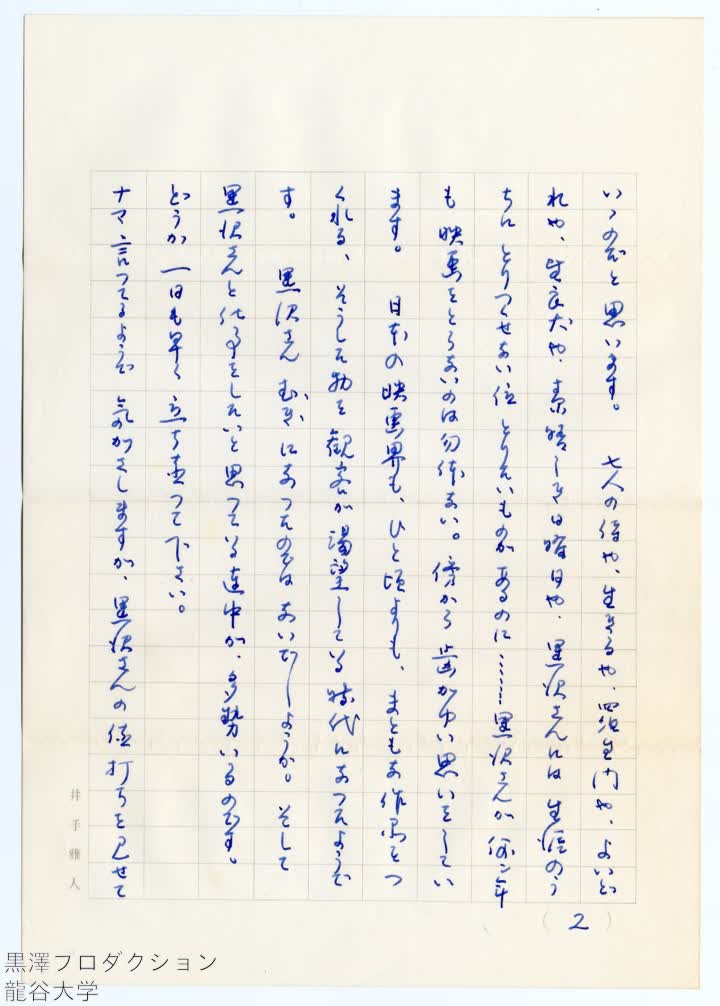 いゝのだと思います。　七人の侍や、生きるや、羅生門や、よいど
れや、野良犬や、素晴しき日曜日や、黒沢さんには生涯のう
ちにとりつくせない位とりたいものがあるのに………黒沢さんが何ン年
も映画をとらないのは勿体ない。傍から歯がゆい思いをしてい
ます。　日本の映画界も、ひと頃よりも、まともな作品をつ
くれる、そうした物を観客が渇望している時代になったようで
す。　黒沢さんむきになったのではないでしょうか。そして
黒沢さんと仕事をしたいと思っている連中が、多勢いるのです。
どうか一日も早く立ち直って下さい。
ナマ言ってるようで気がさしますが、黒沢さんの値打ちを見せて
井手雅人
(2)
黒澤プロダクション
龍谷大学